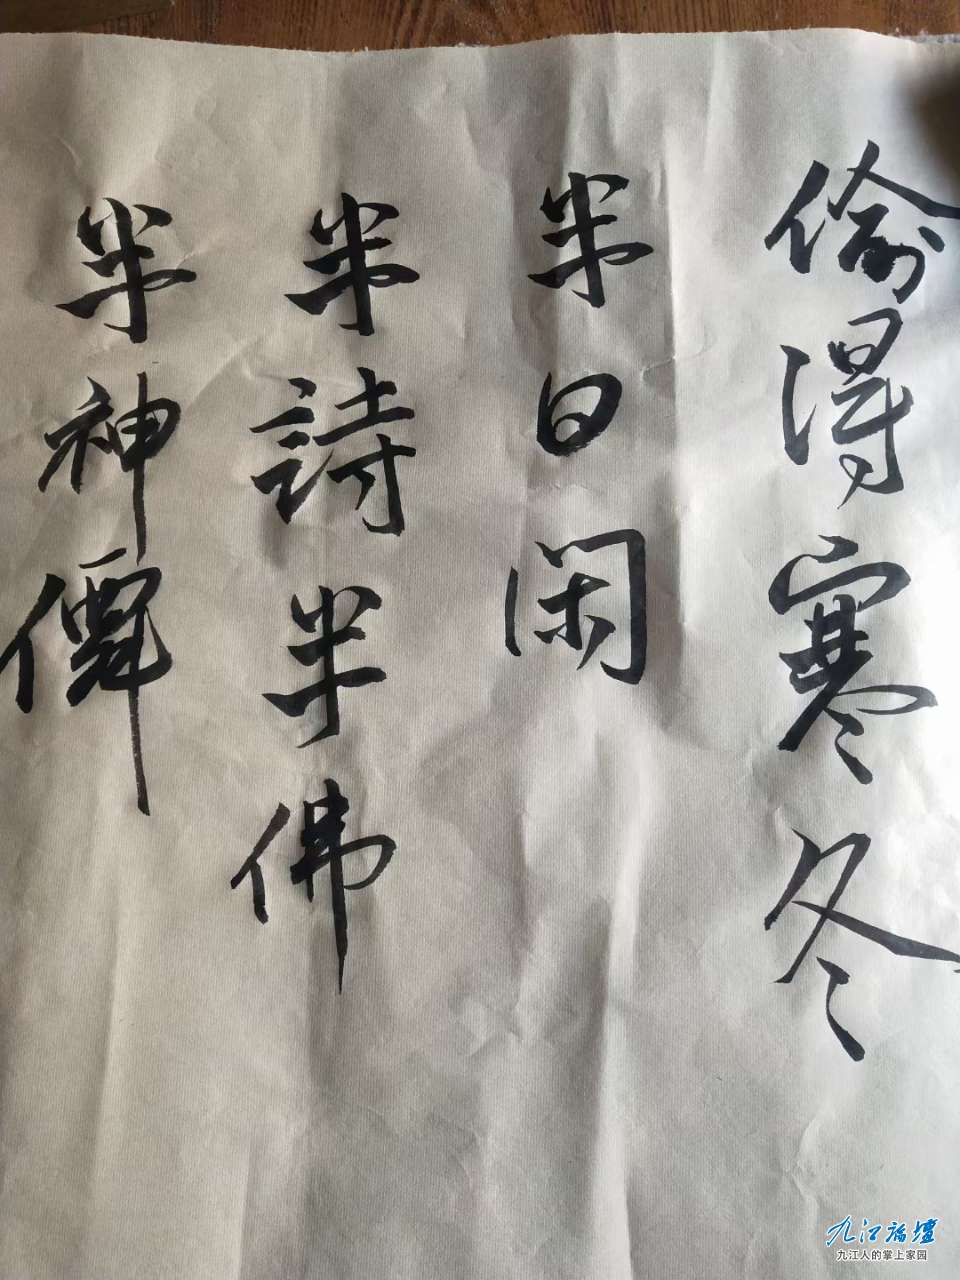 偷得寒冬
半日闲
半詩半佛
半神僊
九江论坛
九江人的掌上家园